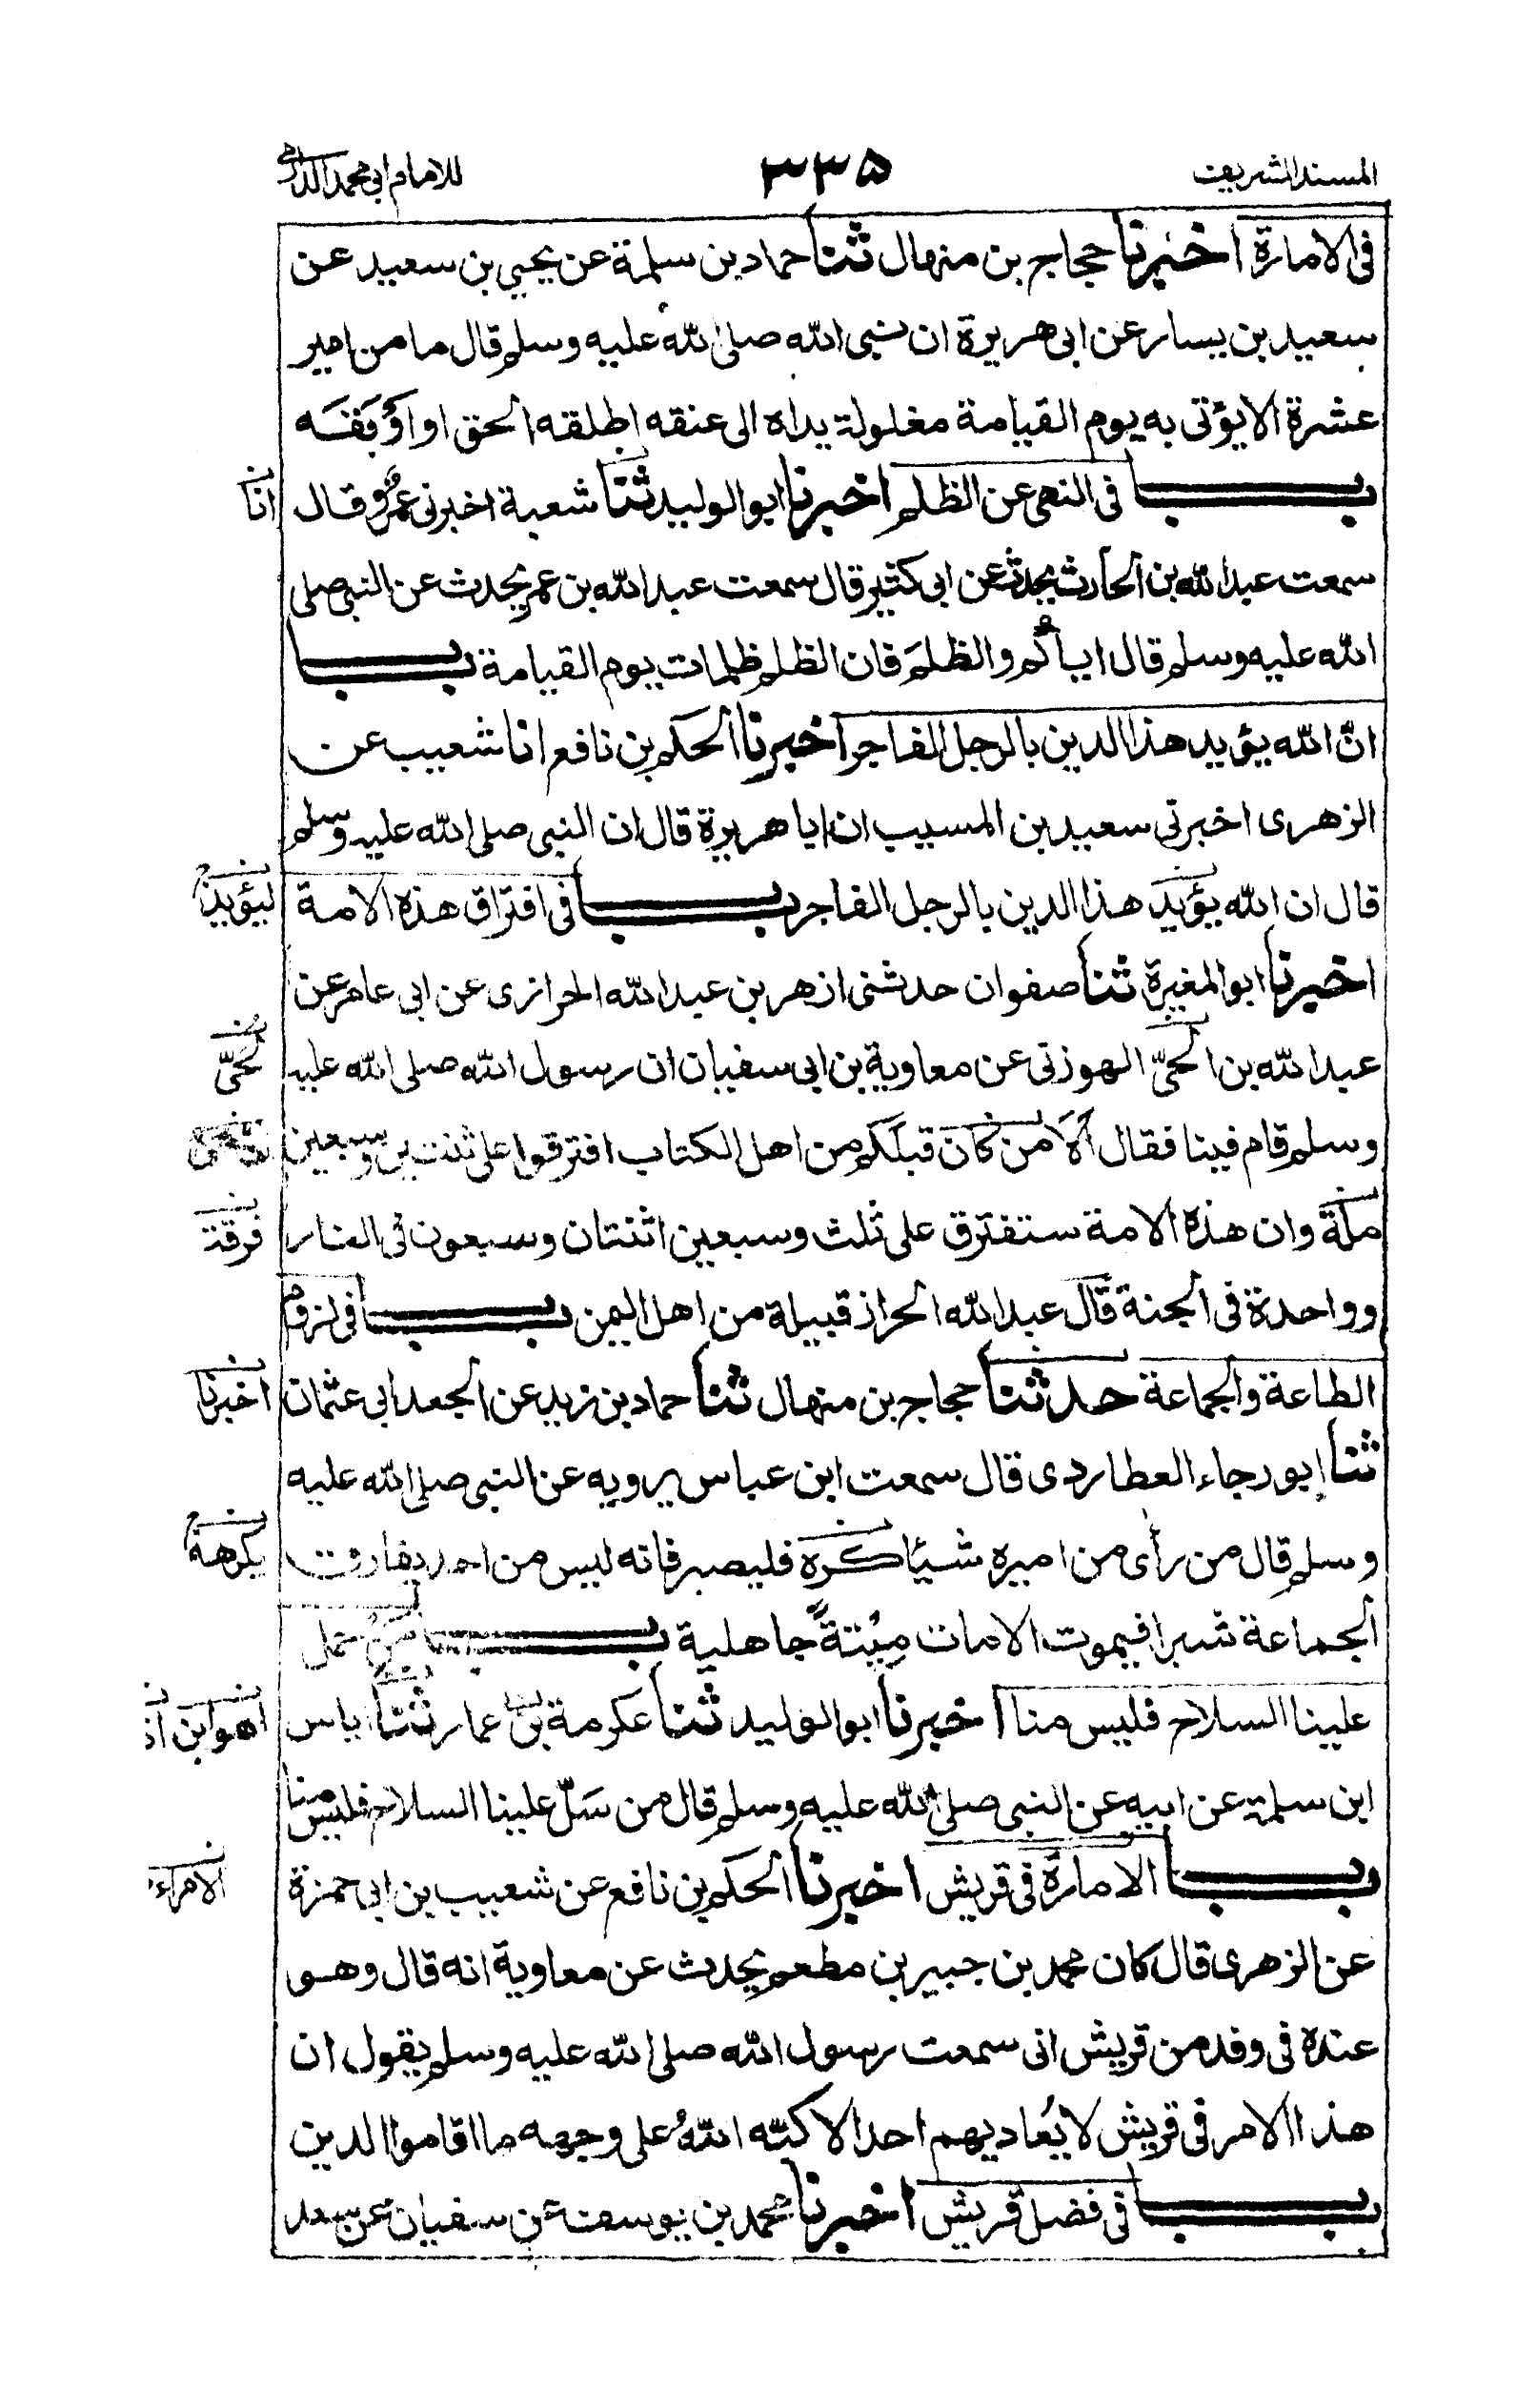 المسند الشريف ٣٣٥ للامام ابي محمد الدارمي
في الامارة اخبرنا حجاج بن منهال ثنا حماد بن سلمة عن يحيي بن سعيد عن
سعيد بن يسار عن ابي هريرة ان نبي الله صلى الله عليه وسلم قال ما من امير
عشرة الا يؤتى به يوم القيامة مغلولة يداه الى عنقه اطلقه الحق او اَوْبَقَه
بــــاب في النهي عن الظلم اخبرنا ابو الوليد ثنا شعبة اخبرني عمرو قال
انا
سمعت عبد الله بن الحارث يحدث عن ابي كثير قال سمعت عبد الله بن عمر يحدث عن النبي صلى
الله عليه وسلم قال اياكم والظلمَ فان الظلم ظلمات يوم القيامة بــــاب
انّ الله يؤيد هذا الدين بالرجل الفاجر اخبرنا الحكم بن نافع انا شعيب عن
الزهري اخبرني سعيد بن المسيب ان ابا هريرة قال ان النبي صلى الله عليه وسلم
قال ان الله يؤيد هذا الدين بالرجل الفاجر بــــاب في افتراق هذه الامة
ليؤيد
اخبرنا ابو المغيرة ثنا صفوان حدثني ازهر بن عبد الله الحرازي عن ابي عامر عن
عبد الله بن الحيّ الهوزني عن معاوية بن ابي سفيان ان رسول الله صلى الله عليه
لُحَيّ
وسلم قام فينا فقال اَلَا من كان قبلكم من اهل الكتاب افترقوا على ثنتين وسبعين
ملة وان هذه الامة ستفترق على ثلث وسبعين اثنتان وسبعون في النار
فرقة
وواحدة في الجنة قال عبد الله الحراز قبيلة من اهل اليمن بــــاب في لزوم
الطاعة والجماعة حدثنا حجاج بن منهال ثنا حماد بن زيد عن الجعد ابي عثمان
اخبرنا
ثنا ابو رجاء العطاردي قال سمعت ابن عباس يرويه عن النبي صلى الله عليه
وسلم قال من رأى من اميره شيئا كره فليصبر فانه ليس من احد يفارق
يكرهه
الجماعة شبرا فيموت الا مات مِيْتةً جاهلية بــــاب من حمل
علينا السلاح فليس منا اخبرنا ابو الوليد ثنا عكرمة بن عمار ثنا اياس
هو ابن
ابن سلمة عن ابيه عن النبي صلى الله عليه وسلم قال من سَلّ علينا السلاح فليس منا
بــــاب الامارة في قريش اخبرنا الحكم بن نافع عن شعيب بن ابي حمزة
الامراء
عن الزهري قال كان محمد بن جبير بن مطعم يحدث عن معاوية انه قال وهو
عنده في وفد من قريش اني سمعت رسول الله صلى الله عليه وسلم يقول ان
هذا الامر في قريش لا يُعاديهم احد الا كبّه اللهُ على وجهه ما اقاموا الدين
بــــاب في فضل قريش اخبرنا محمد بن يوسف عن سفيان عن سعد